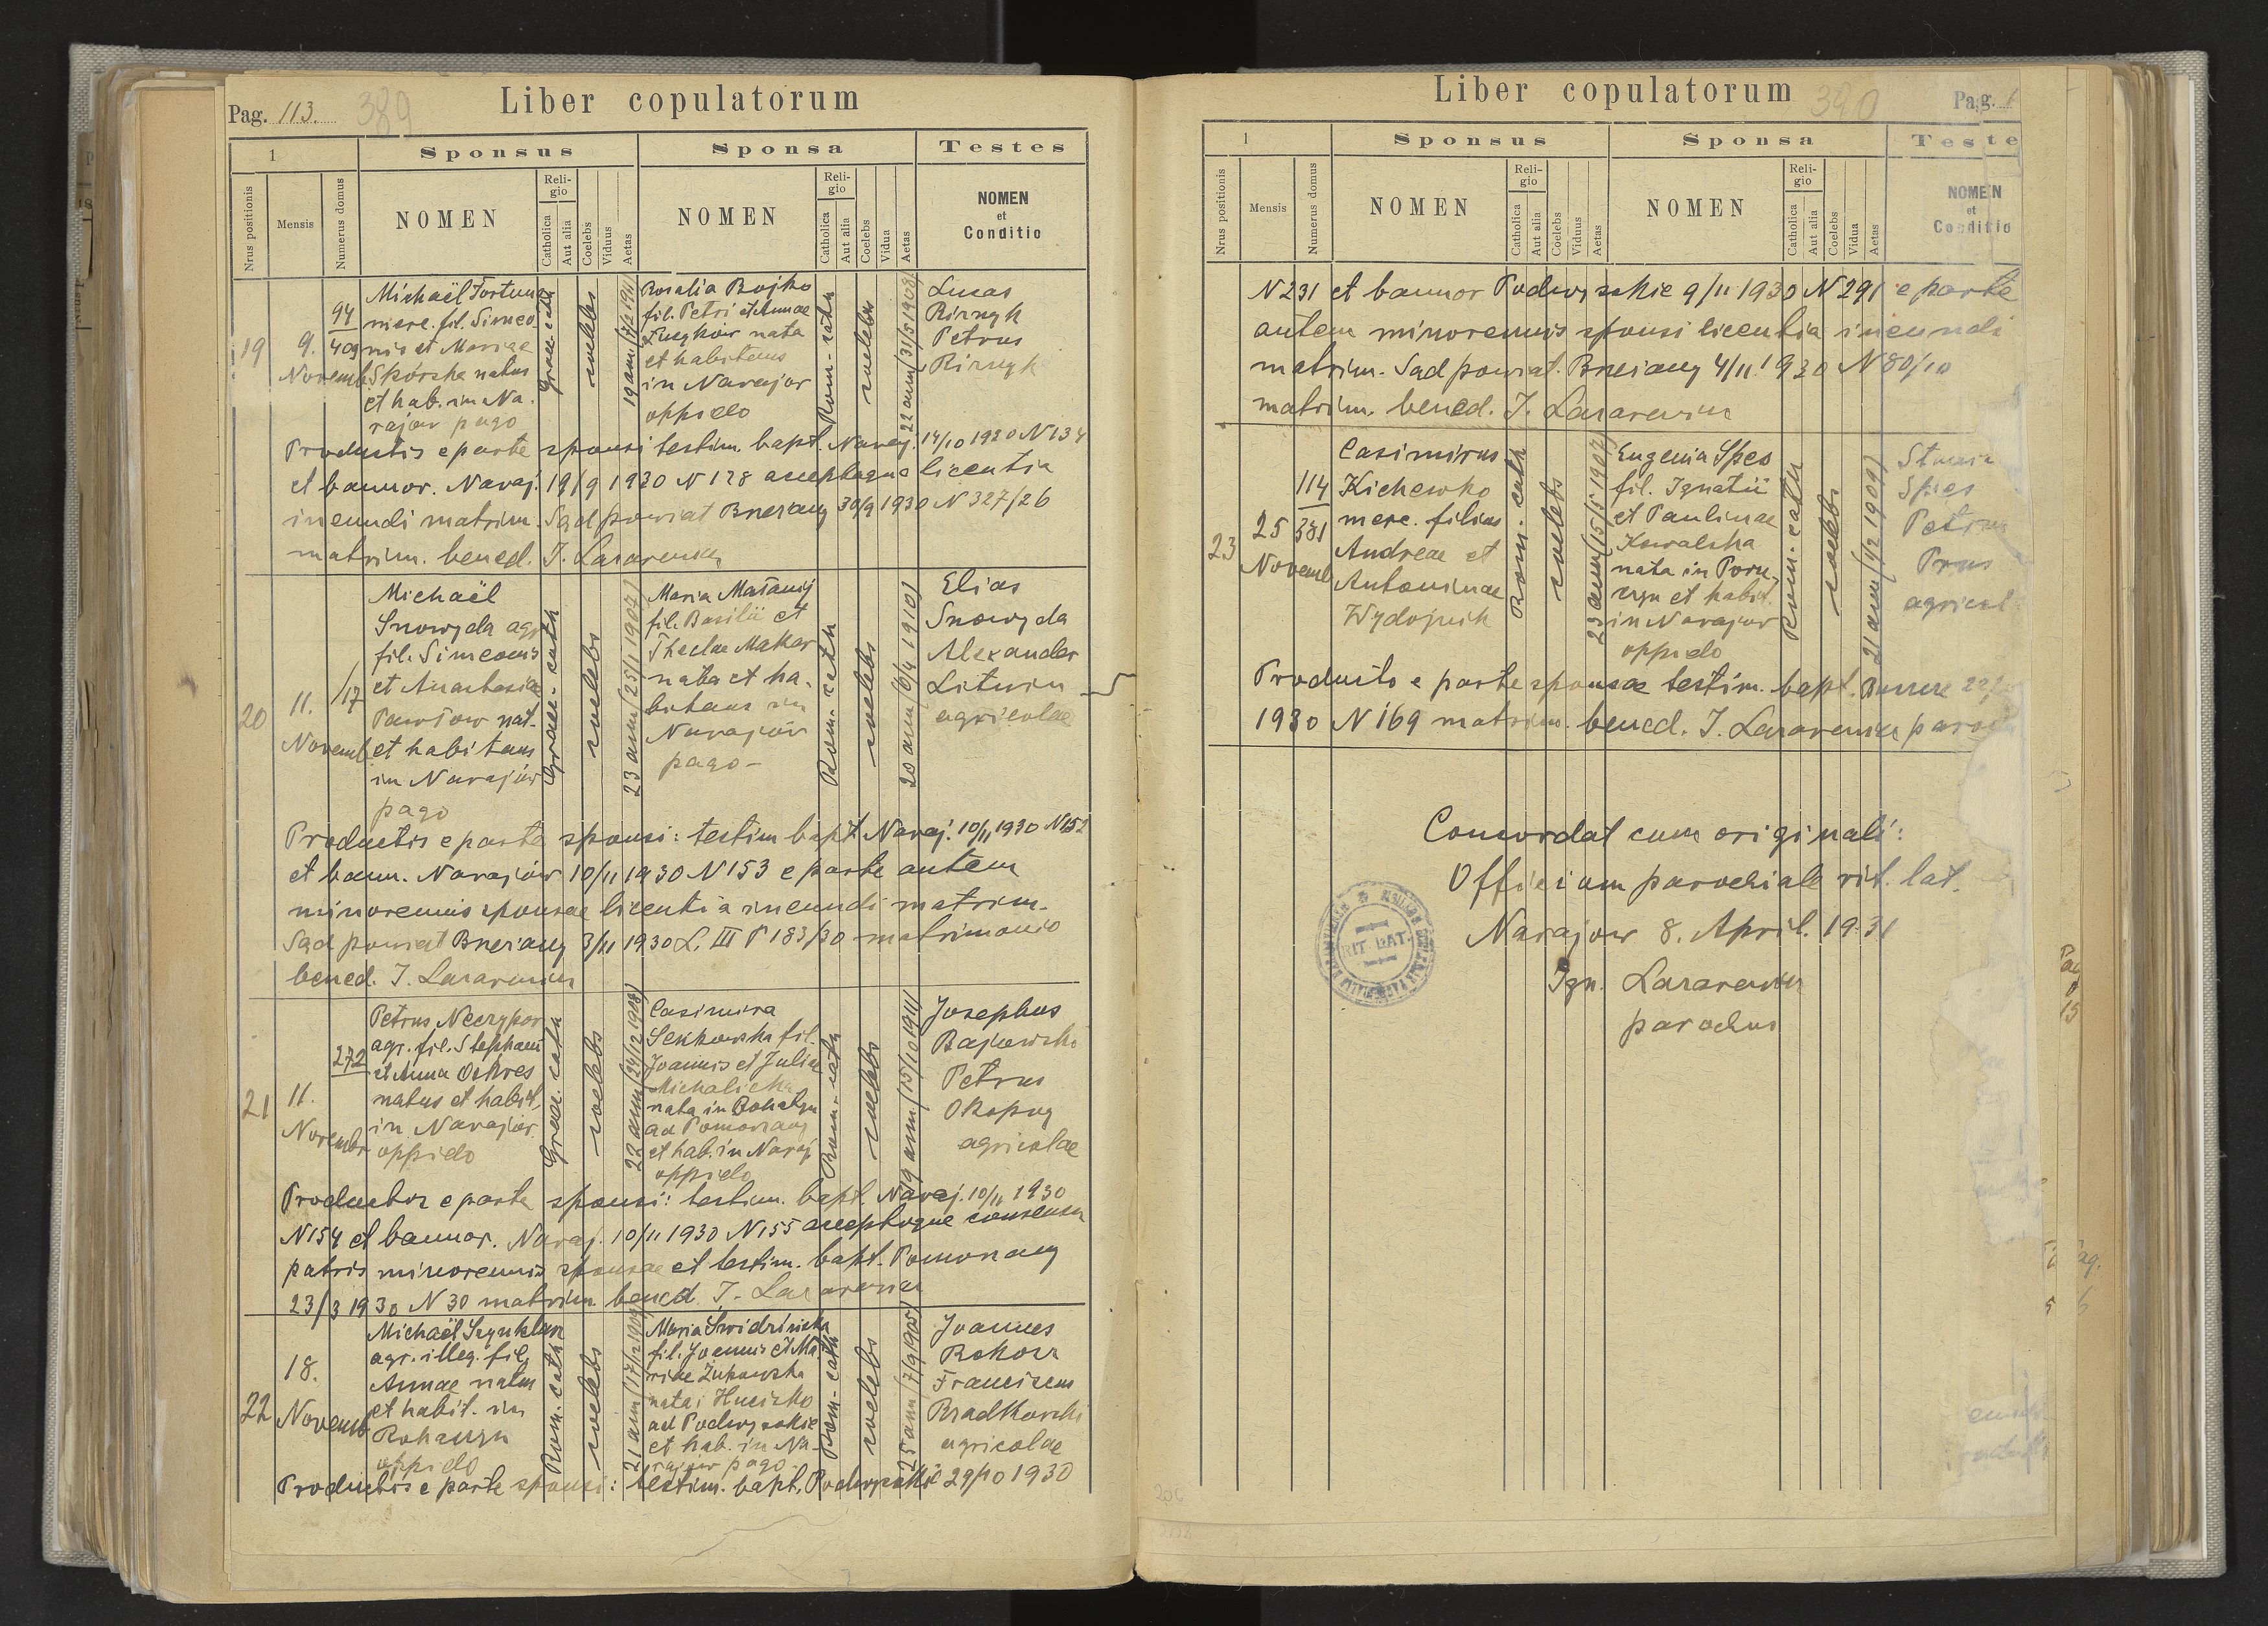 Pag. 113. 389
Liber copulatorum
1
Sponsus
Sponsa
Testes
Nrus positionis
Mensis
Numerus domus
NOMEN
Religio
Catholica
Aut alia
Coelebs
Viduus
Aetas
NOMEN
Religio
Catholica
Aut alia
Coelebs
Vidua
Aetas
NOMEN
et
Conditio
19
9.
Novemb
94
409
Michaël Fortuna
merc. fil. Simeo-
nis et Mariae
Skórska natus
et hab. in Na-
rajów pago
Graec-cath
coelebs
19 ann
Rosalia Bojko
fil. Petri et Annae
nata
et habitans
in Narajow
oppido
Rom-cath
coelebs
22 ann (31/5 1908)
Lucas
Petrus
Productis e parte sponsi testim. bapt. Naraj. 14/10 1930 N 134
et bannor. Naraj. 19/9 1930 N 128 acceptaque licentia
ineundi matrim. Sąd powiat Brzeżany 30/9 1930 N 327/26
matrim. bened. I. Lazarewicz
20
11.
Novemb
17
Michaël
Snowyda agr
fil. Simeonis
et Anastasiae
Pawłow nat.
et habitans
in Narajów
pago
Graec-cath
coelebs
23 ann (25/1 1907)
Maria Matanij
fil. Basilii et
Theclae Makar
nata et ha-
bitans in
Narajów
pago -
Rom-cath
coelebs
20 ann (6/4 1910)
Elias
Snowyda
Alexander
Litwin
agricolae
Productis e parte sponsi: testim bapt. Naraj. 10/11 1930 N 152
et bann. Narajów 10/11 1930 N 153 e parte autem
minorennis sponsae licentia ineundi matrim.
Sąd powiat Brzeżany 3/11 1930 L. III P 183/30 matrimonio
bened. I. Lazarewicz
21
11.
Novembr
272
Petrus Neczypor
agr. fil. Stephani
et Anna Oskres
natus et habit.
in Narajów
oppido
Graec-cath
coelebs
22 ann (24/12 1908)
Casimira
Sekkowska fil.
Joannis et Juliae
Michalicka
nata in Bohatyn
ad Pomorzany
et hab. in Naraj
oppido
Rom-cath
coelebs
19 ann (15/10 1911)
Josephus
Bajkowski
Petrus
Okopny
agricolae
Productis e parte sponsi: testim. bapt. Naraj. 10/11 1930
N 154 et bannor. Naraj. 10/11 1930 N 155 acceptoque consensu
patris minorennis sponsae et testim. bapt. Pomorzany
23/3 1930 N 30 matrim bened. I. Lazarewicz
22
18.
Novemb
Michaël Szynklarz
agr. illeg. fil.
Annae natus
et habit. in
Rohaczyn
oppido
Rom-cath
coelebs
21 ann (17/12 1909)
Maria Swidzinska
fil. Joannis et Ma-
riae Żukowska
nata i Hucisko
ad Podwysokie
et hab. in Na-
rajow pago.
Rom-cath
coelebs
25 ann (7/9 1905)
Joannes
Rokosz
Franciscus
Bradkowski
agricolae
Productis e parte sponsi: testim. bapt. Podwysokie 29/10 1930
Liber copulatorum
390
Pag.
1
Sponsus
Sponsa
Teste
Nrus positionis
Mensis
Numerus domus
NOMEN
Religio
Catholica
Aut alia
Coelebs
Viduus
Aetas
NOMEN
Religio
Catholica
Aut alia
Coelebs
Vidua
Aetas
NOMEN
et
Conditio
N 231 et bannor Podwysokie 9/11 1930 N 291 e parte
autem minorennis sponsi licentia ineundi
matrim. Sąd powiat. Brzeżany 4/11 1930 N 80/10
matrim. bened. I. Lazarewicz
23
25
Novemb
114
381
Casimirus
Kichewko
merc. filius
Andreae et
Antoninae
Wydojnik
Rom-cath
coelebs
23 ann (15/5 1907)
Eugenia Spes
fil. Ignatii
et Paulinae
Kowalska
nata in
et habit.
in Narajow
oppido
Rom-cath
coelebs
21 ann (1/2 1909)
Petrus
Prus
agricol
Producto e parte sponsae testim. bapt.
1930 N 169 matrim. bened. I. Lazarewicz paroch
Concordat cum originali:
Officium parochiale rit. lat.
Narajow 8. April. 1931
RIT. LAT.
Ign. Lazarewicz
parochus